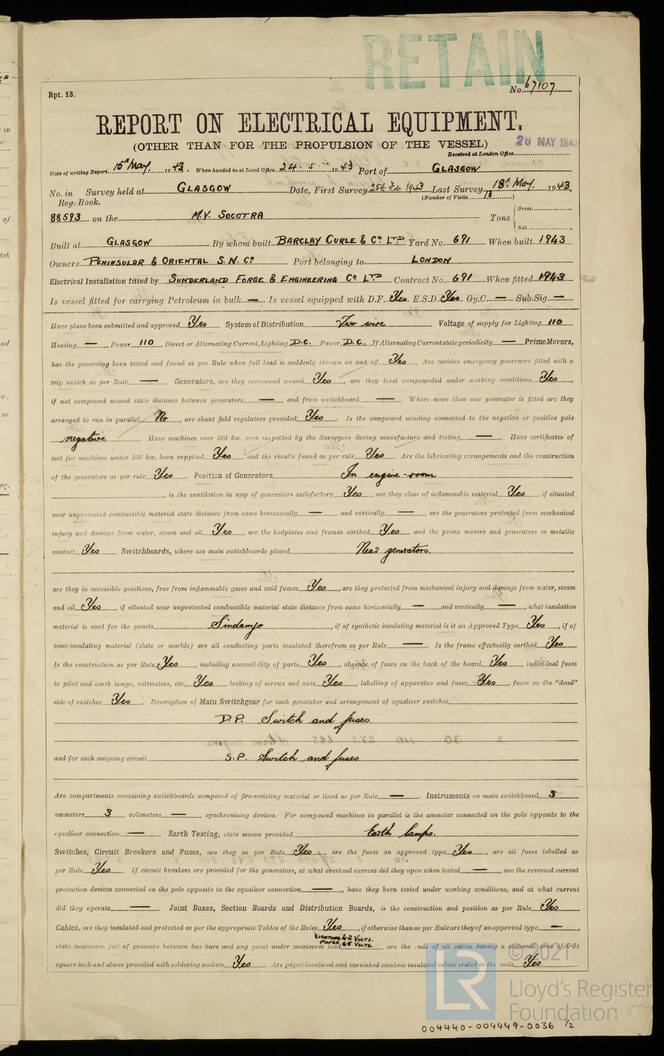 RETAIN
Rpt. 13.
No. 67107
REPORT ON ELECTRICAL EQUIPMENT.
(OTHER THAN FOR THE PROPULSION OF THE VESSEL)
Received at London Office 26 MAY 1943
Date of writing Report 15th May, 1943. When handed in at Local Office 24. 5. 1943 Port of GLASGOW
No. in Survey held at GLASGOW Date, First Survey 25th Feb 1943 Last Survey 18th May, 1943
Reg. Book. (Number of Visits 13)
88593 on the M.V. SOCOTRA Tons { Gross Net
Built at GLASGOW By whom built BARCLAY CURLE & Co LTD Yard No. 691 When built 1943
Owners PENINSULAR & ORIENTAL S.N. Co Port belonging to LONDON
Electrical Installation fitted by SUNDERLAND FORGE & ENGINEERING Co LTD Contract No. 691 When fitted 1943
Is vessel fitted for carrying Petroleum in bulk — Is vessel equipped with D.F. Yes. E.S.D. Yes Gy.C. — Sub.Sig. —
Have plans been submitted and approved Yes System of Distribution Two wire Voltage of supply for Lighting 110
Heating — Power 110 Direct or Alternating Current, Lighting D.C. Power D.C. If Alternating Current state periodicity — Prime Movers,
has the governing been tested and found as per Rule when full load is suddenly thrown on and off Yes Are turbine emergency governors fitted with a
trip switch as per Rule — Generators, are they compound wound Yes, are they level compounded under working conditions Yes,
if not compound wound state distance between generators — and from switchboard — Where more than one generator is fitted are they
arranged to run in parallel No, are shunt field regulators provided Yes Is the compound winding connected to the negative or positive pole
negative Have machines over 100 kw. been inspected by the Surveyors during manufacture and testing — Have certificates of
test for machines under 100 kw. been supplied Yes and the results found as per rule Yes Are the lubricating arrangements and the construction
of the generators as per rule Yes Position of Generators In engine-room
, is the ventilation in way of generators satisfactory Yes are they clear of inflammable material Yes, if situated
near unprotected combustible material state distance from same horizontally — and vertically —, are the generators protected from mechanical
injury and damage from water, steam and oil Yes, are the bedplates and frames earthed Yes and the prime movers and generators in metallic
contact Yes Switchboards, where are main switchboards placed Near generators.
are they in accessible positions, free from inflammable gases and acid fumes Yes, are they protected from mechanical injury and damage from water, steam
and oil Yes, if situated near unprotected combustible material state distance from same horizontally — and vertically —, what insulation
material is used for the panels Sindanyo, if of synthetic insulating material is it an Approved Type Yes, if of
semi-insulating material (slate or marble) are all conducting parts insulated therefrom as per Rule — Is the frame effectually earthed Yes
Is the construction as per Rule Yes, including accessibility of parts Yes, absence of fuses on the back of the board Yes, individual fuses
to pilot and earth lamps, voltmeters, etc., Yes locking of screws and nuts Yes, labelling of apparatus and fuses Yes, fuses on the "dead"
side of switches Yes. Description of Main Switchgear for each generator and arrangement of equaliser switches
D.P. Switch and fuses
and for each outgoing circuit S.P. Switch and fuses
Are compartments containing switchboards composed of fire-resisting material or lined as per Rule — Instruments on main switchboard 3
ammeters 3 voltmeters — synchronising devices. For compound machines in parallel is the ammeter connected on the pole opposite to the
equaliser connection — Earth Testing, state means provided Earth lamps.
Switches, Circuit Breakers and Fuses, are they as per Rule Yes, are the fuses an approved type Yes, are all fuses labelled as
per Rule Yes If circuit breakers are provided for the generators, at what overload current did they open when tested —, are the reversed current
protection devices connected on the pole opposite to the equaliser connection —, have they been tested under working conditions, and at what current
did they operate — Joint Boxes, Section Boards and Distribution Boards, is the construction and position as per Rule Yes
Cables, are they insulated and protected as per the appropriate Tables of the Rules Yes, if otherwise than as per Rule are they of an approved type —,
state maximum fall of pressure between bus bars and any point under maximum load LIGHTING 4.2 VOLTS. POWER 6.8 VOLTS, are the ends of all cables having a sectional area of 0·04
square inch and above provided with soldering sockets Yes Are paper insulated and varnished cambric insulated cables sealed at the ends Yes
© 2021
LR
Lloyd's Register
Foundation
004440-004449-0036 1/2